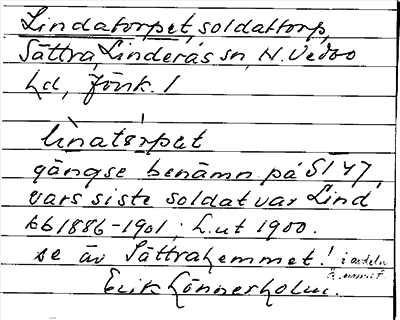 Lindatorpet, soldattorp,
Sättra, Linderås sn, N. Vedbo
hd, Jönk. l
linatårpet
gängse benämn på SI 47,
vars siste soldat var Lind
kb 1886-1901; L. ut 1900.
se äv Sättrahemmet! i avdeln
Erik Lönnerholm.